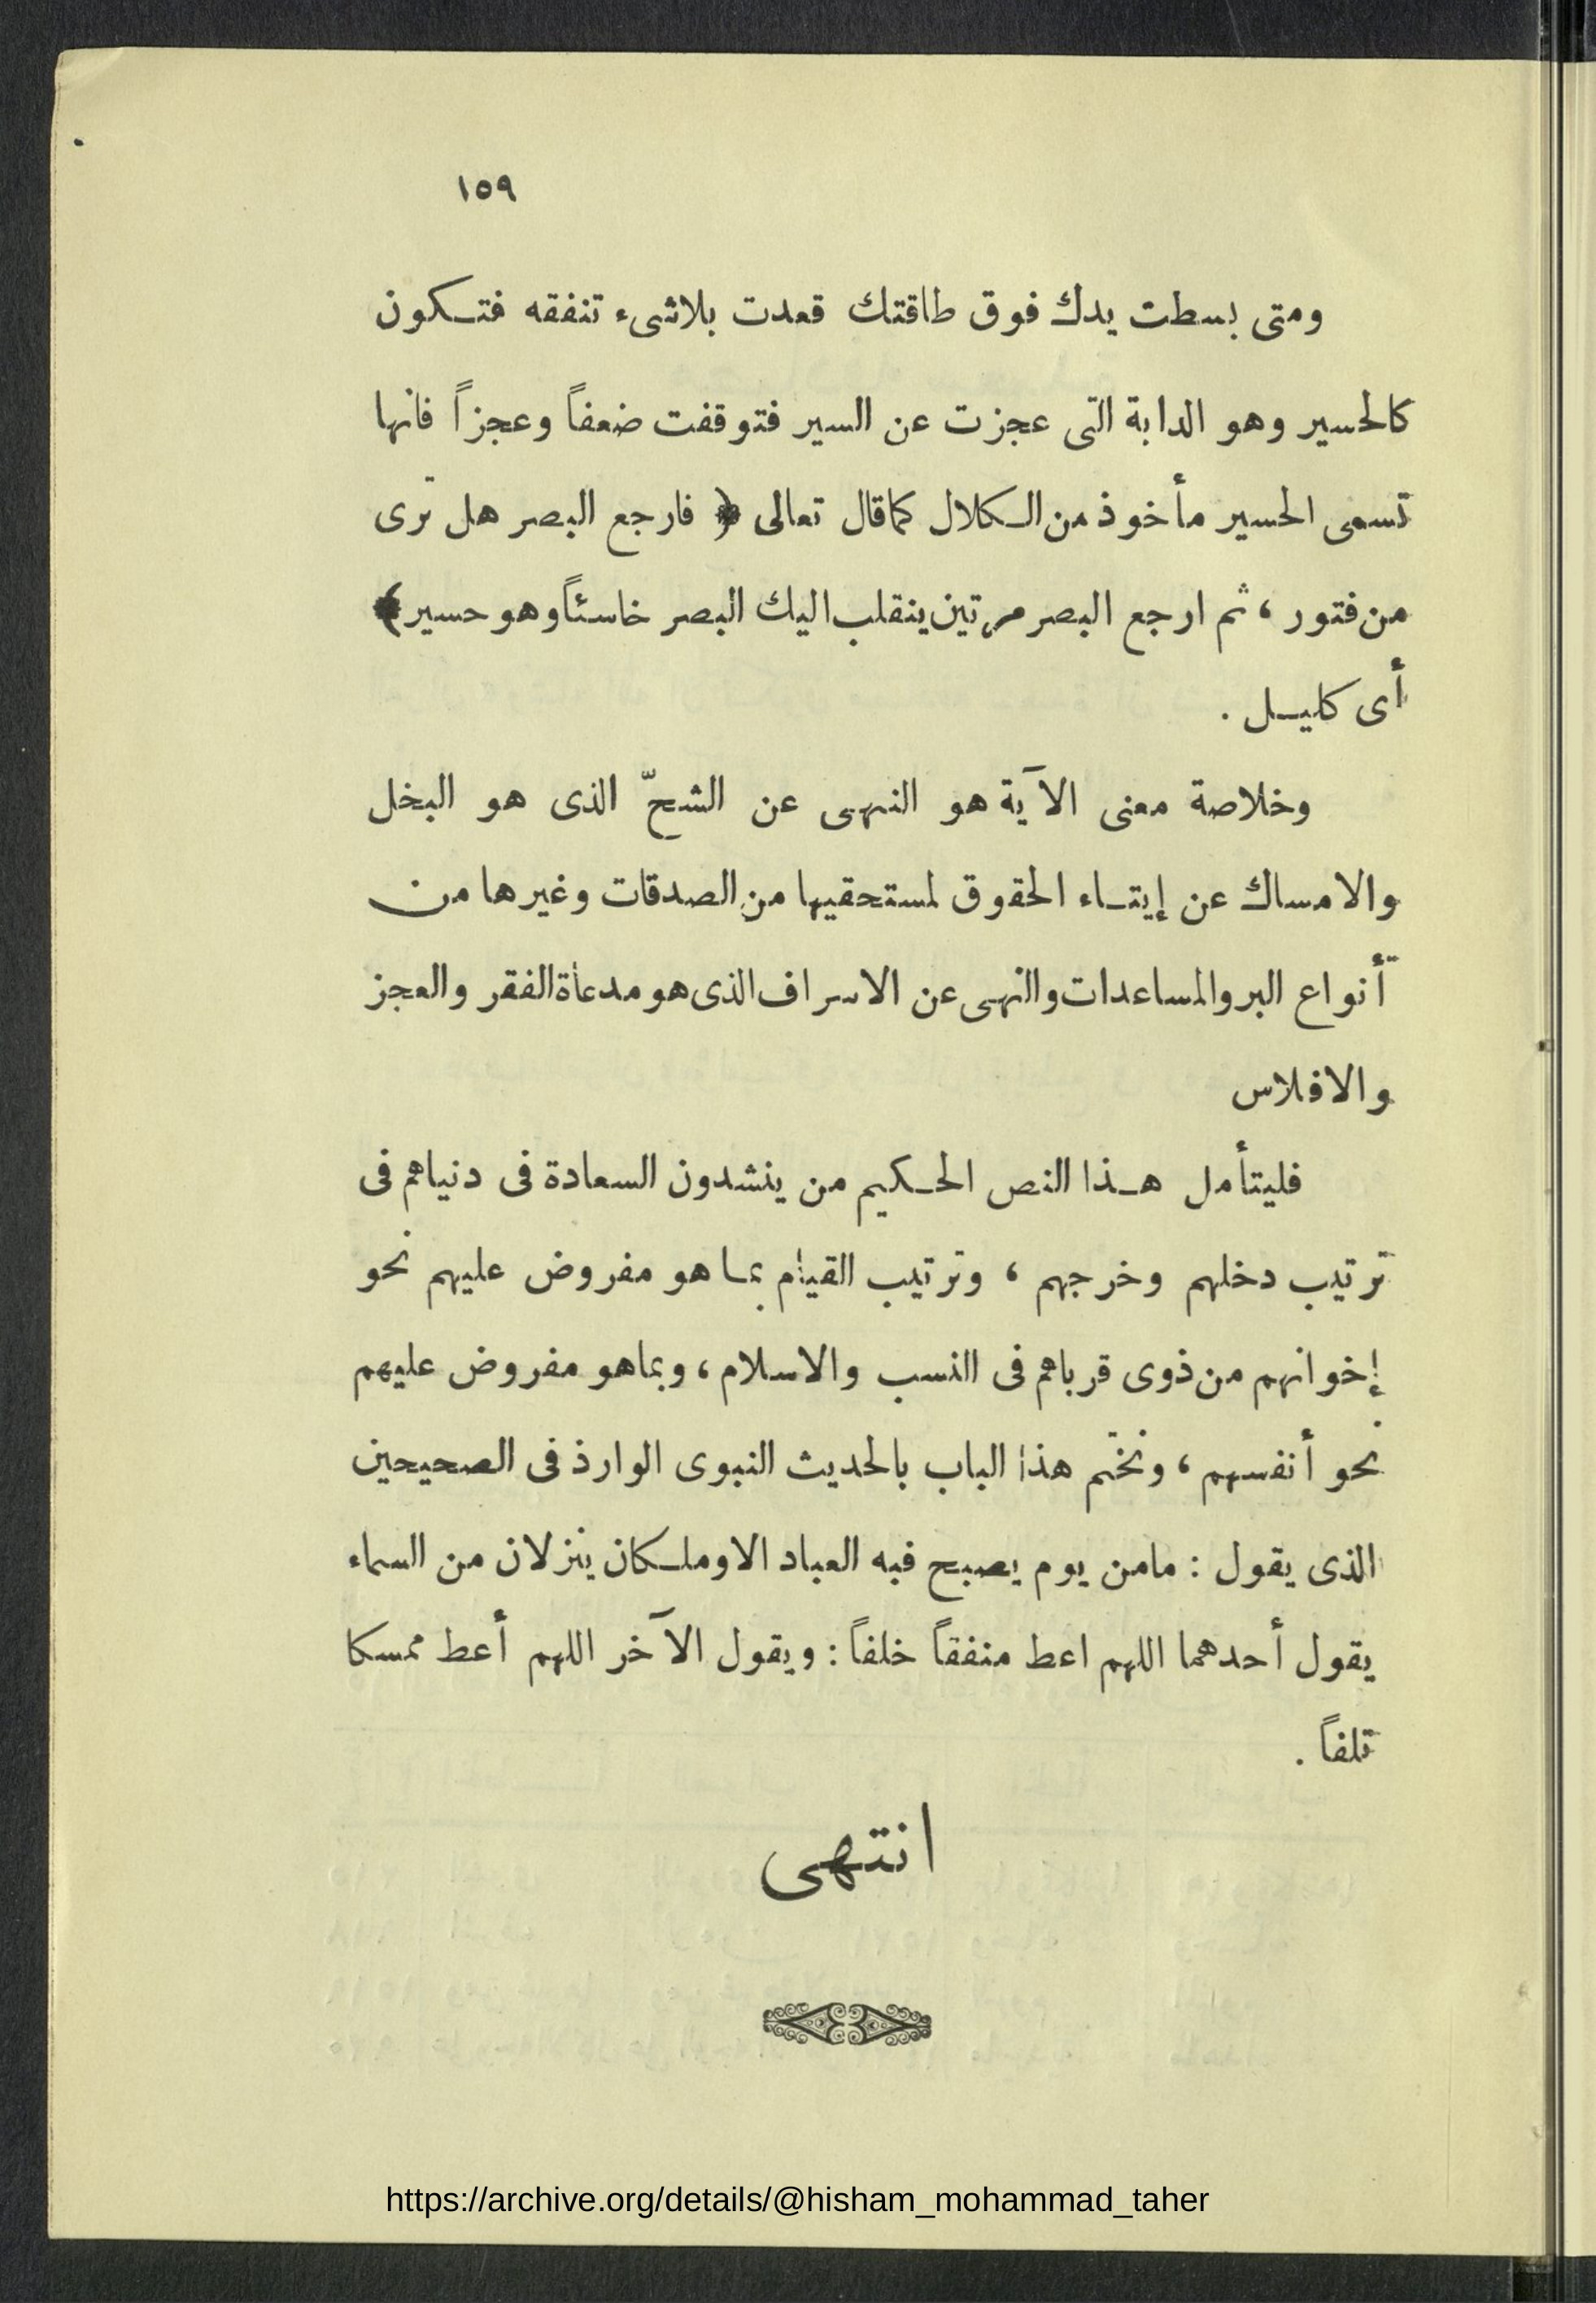 ١٥٩
ومتى بسطت يدك فوق طاقتك قعدت بلاشىء تنفقه فتكون
كالحسير وهو الدابة التى عجزت عن السير فتوقفت ضعفاً وعجزاً فانها
تسمى الحسير مأخوذ من الكلال كما قال تعالى ﴿ فارجع البصر هل ترى
من فتور ، ثم ارجع البصر مرتين ينقلب اليك البصر خاسئاً وهو حسير ﴾
أى كليل .
وخلاصة معنى الآية هو النهى عن الشحّ الذى هو البخل
والامساك عن إيتاء الحقوق لمستحقيها من الصدقات وغيرها من
أنواع البر والمساعدات والنهى عن الاسراف الذى هو مدعاة الفقر والعجز
والافلاس
فليتأمل هذا النص الحكيم من ينشدون السعادة فى دنياهم فى
ترتيب دخلهم وخرجهم ، وترتيب القيام بما هو مفروض عليهم نحو
إخوانهم من ذوى قرباهم فى النسب والاسلام ، وبماهو مفروض عليهم
نحو أنفسهم ، ونختم هذا الباب بالحديث النبوى الوارذ فى الصحيحين
الذى يقول : مامن يوم يصبح فيه العباد الا وملكان ينزلان من السماء
يقول أحدهما اللهم اعط منفقاً خلفاً : ويقول الآخر اللهم أعط ممسكا
تلفاً .
انتهى
https://archive.org/details/@hisham_mohammad_taher